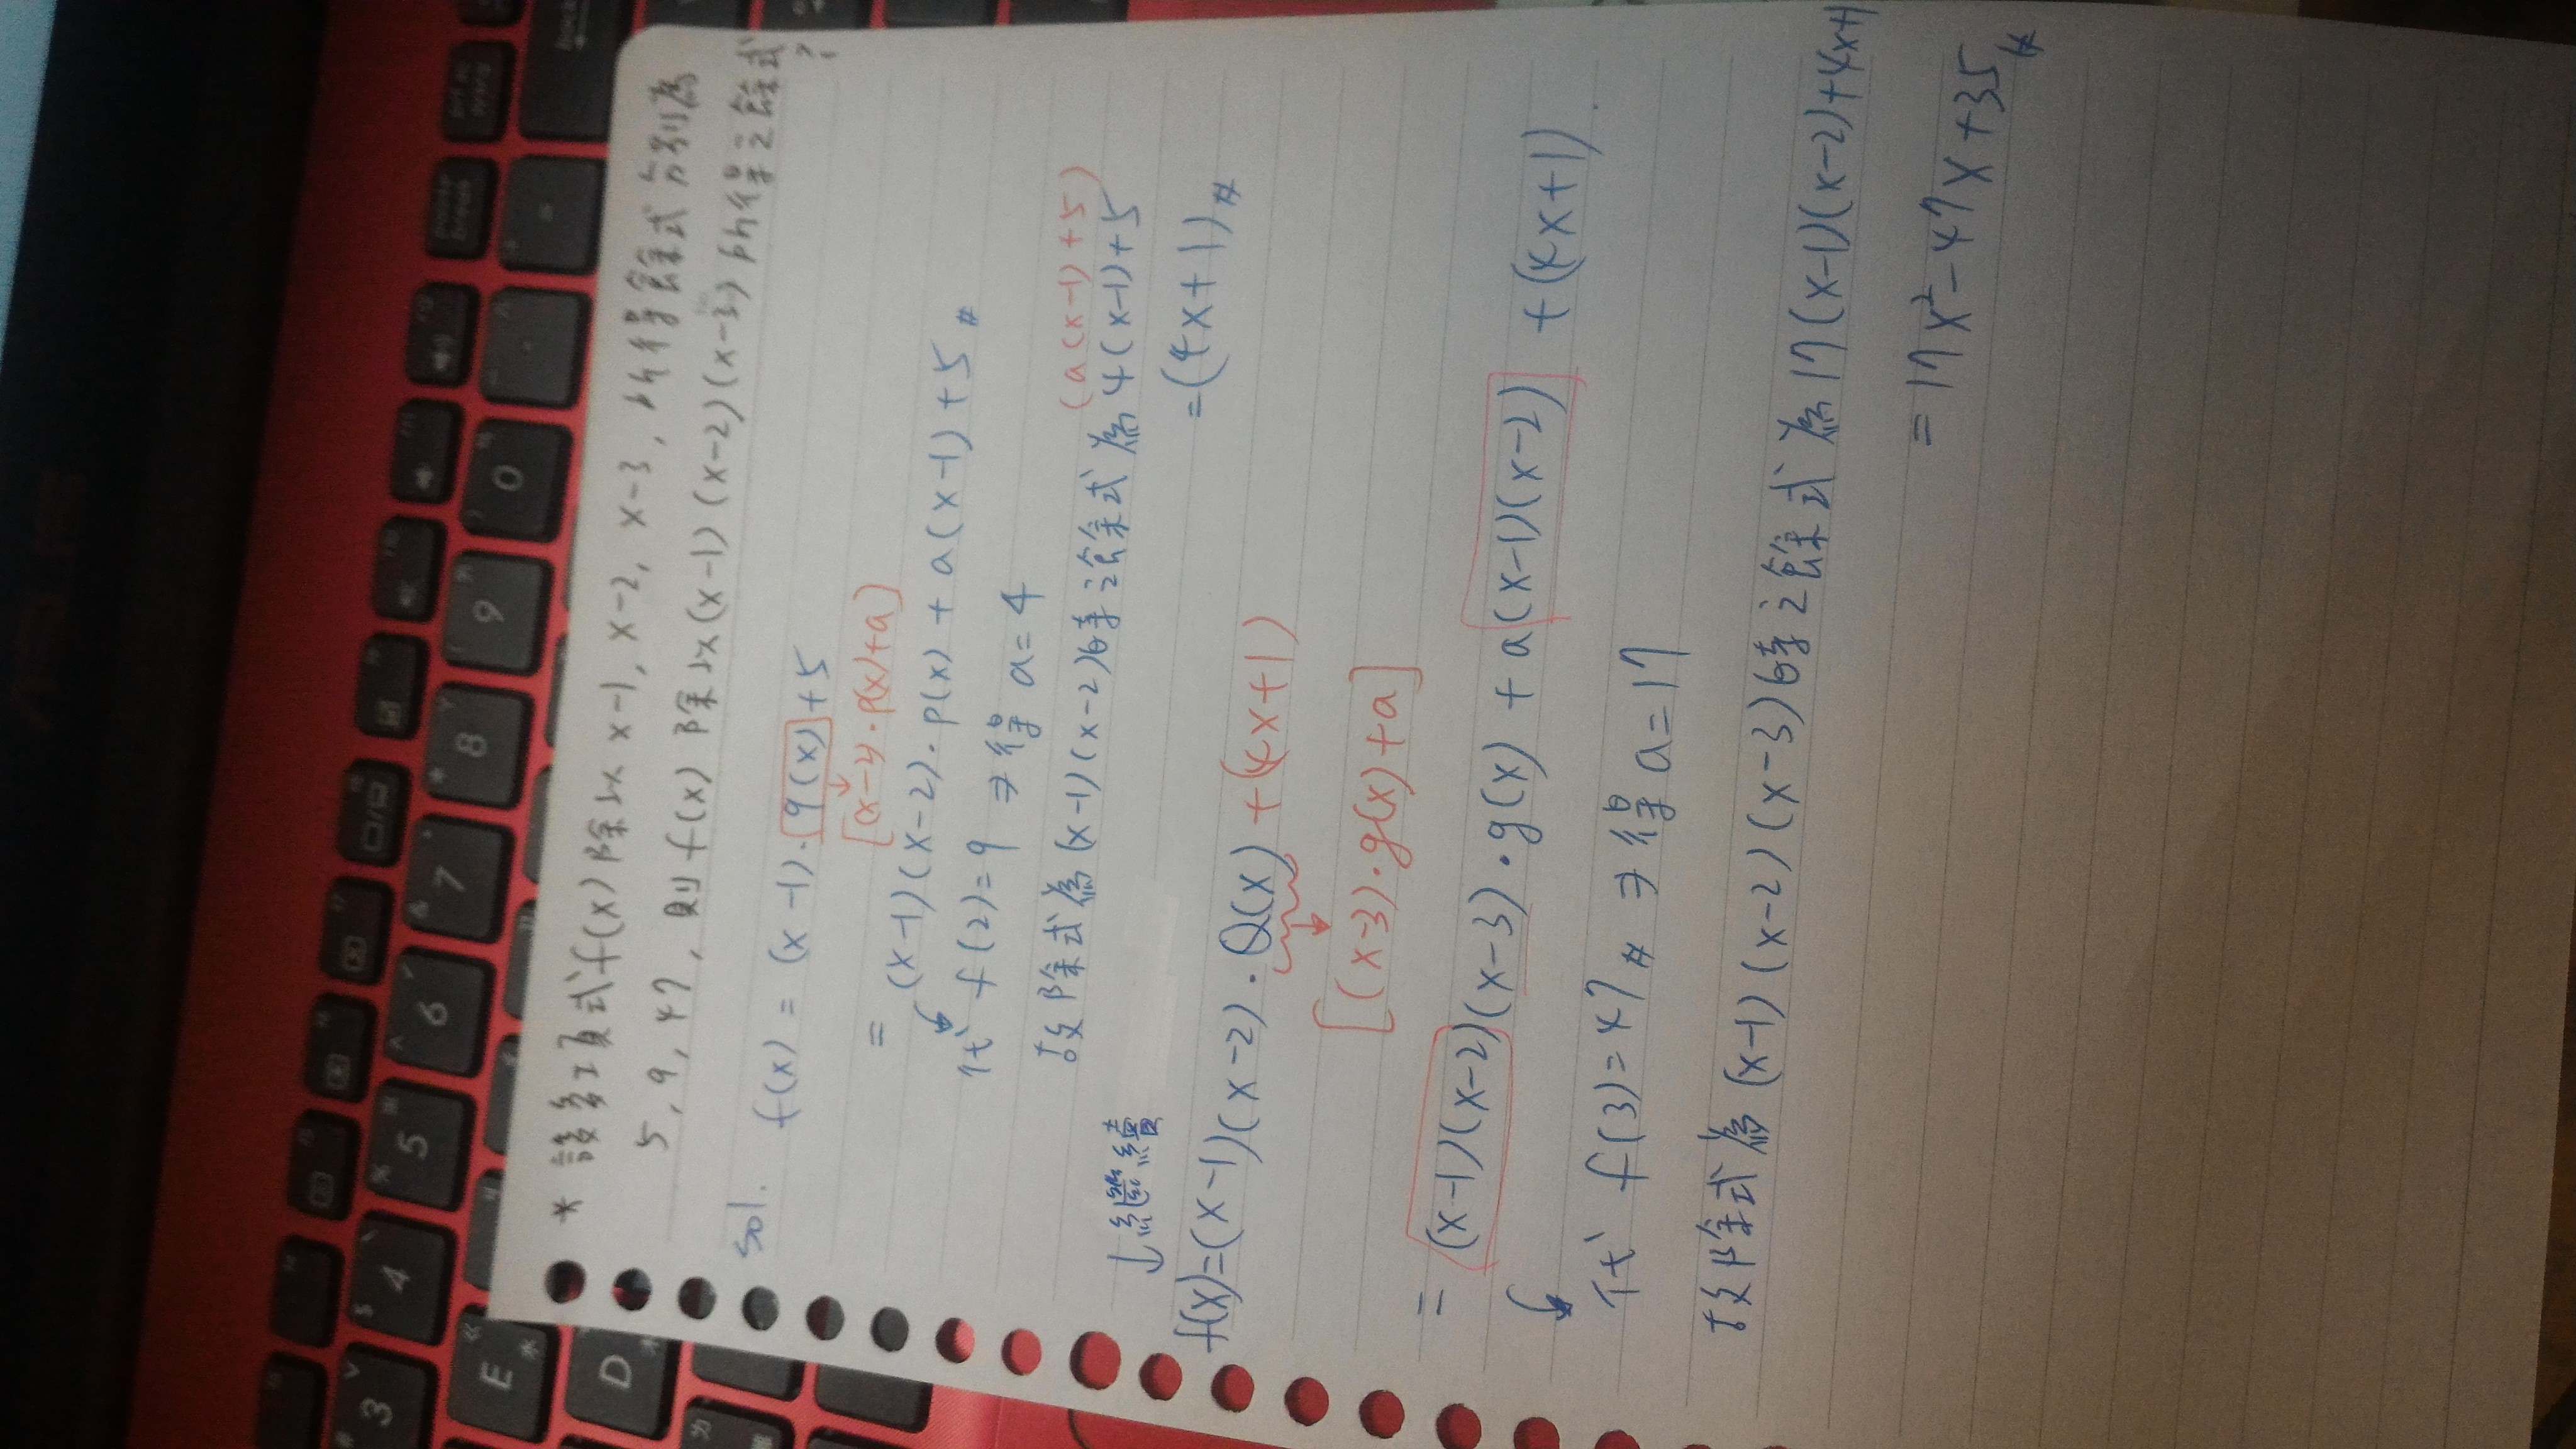 * 設多項式f(x)除以x-1, x-2, x-3, 所得餘式分別為
5, 9, 47, 則f(x)除以(x-1)(x-2)(x-3)所得之餘式?
sol. f(x) = (x-1)·q(x)+5
[(x-2)·p(x)+a]
= (x-1)(x-2)·p(x) + a(x-1)+5 #
代 f(2)=9 ⇒ 得 a=4
(a(x-1)+5)
故除式為(x-1)(x-2)時之餘式為4(x-1)+5
=(4x+1)#
↓繼續
f(x)=(x-1)(x-2)·Q(x)+(4x+1)
[(x-3)·g(x)+a]
= (x-1)(x-2)(x-3)·g(x) + a(x-1)(x-2) + (4x+1)
代 f(3)=47 # ⇒ 得 a=17
故除式為(x-1)(x-2)(x-3)時之餘式為17(x-1)(x-2)+4x+1
= 17x²-47x+35 #
ASUS
backspace
- 0 9 8 7 6 5 4 3
E D